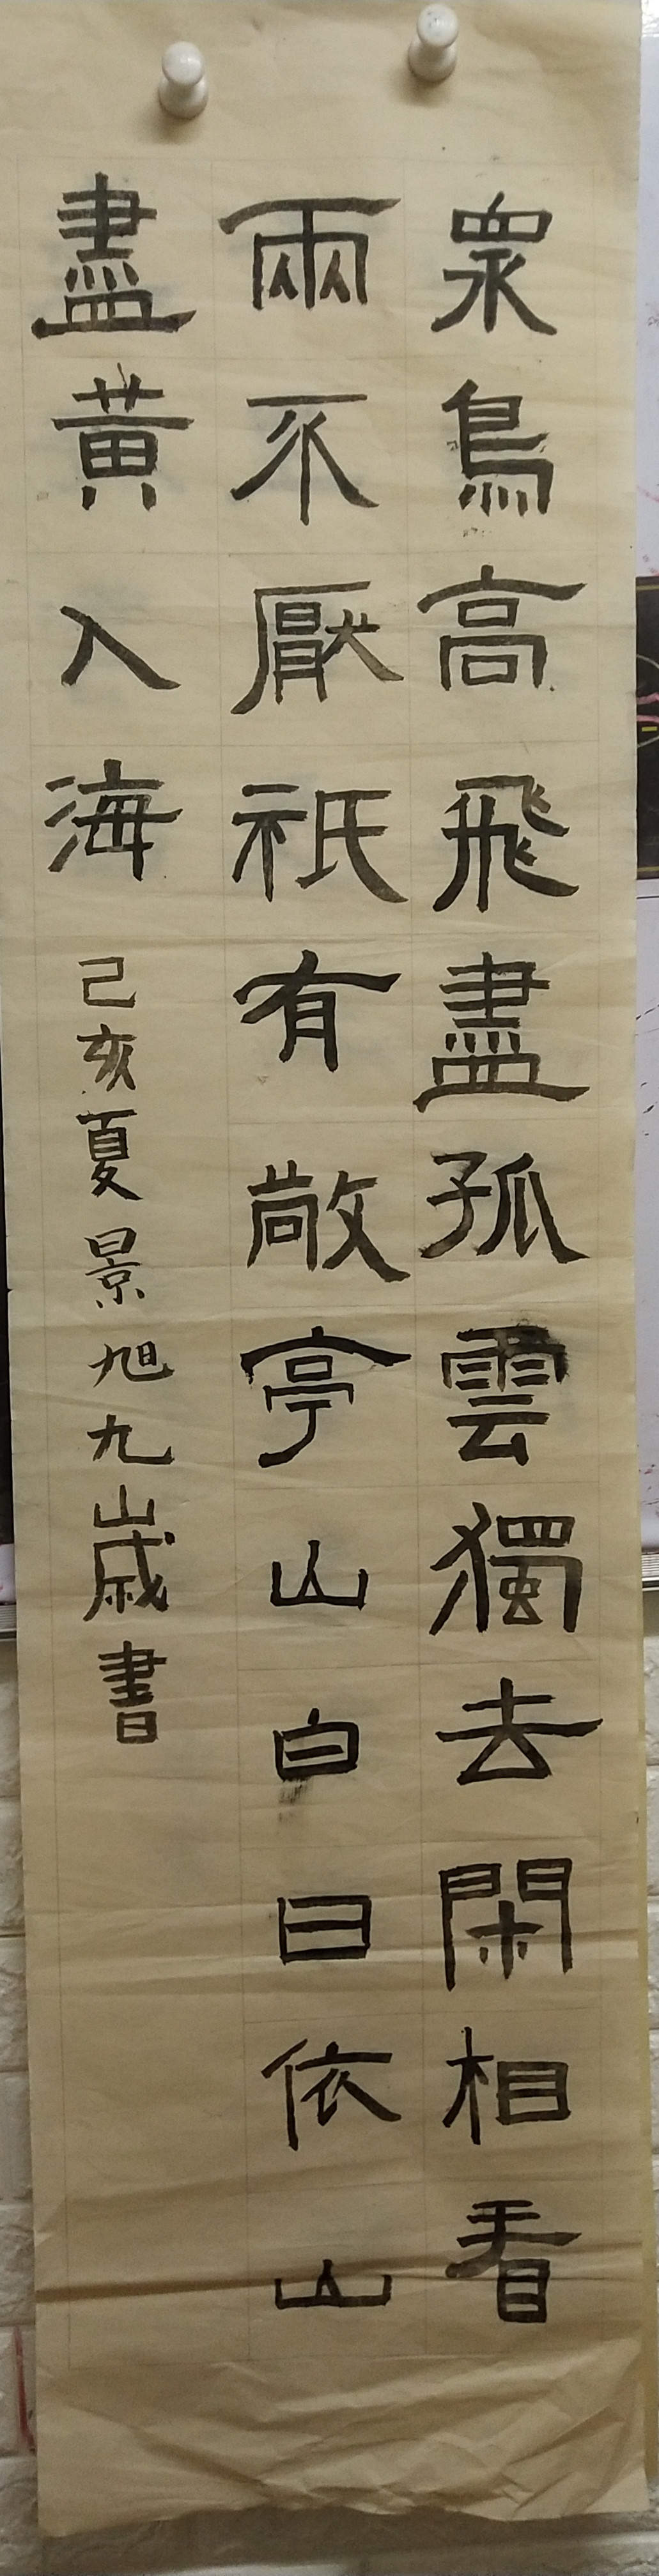 眾鳥高飛盡孤雲獨去閑相看
兩不厭祇有敬亭山白日依山
盡黃入海
己亥夏景旭九歲書